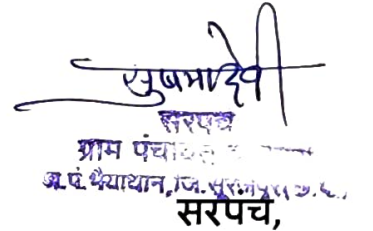 सुषमादेवी
सरपंच
ग्राम पंचायत
ज.पं. भैयाथान, जि. सूरजपुर, छ.ग.
सरपंच,